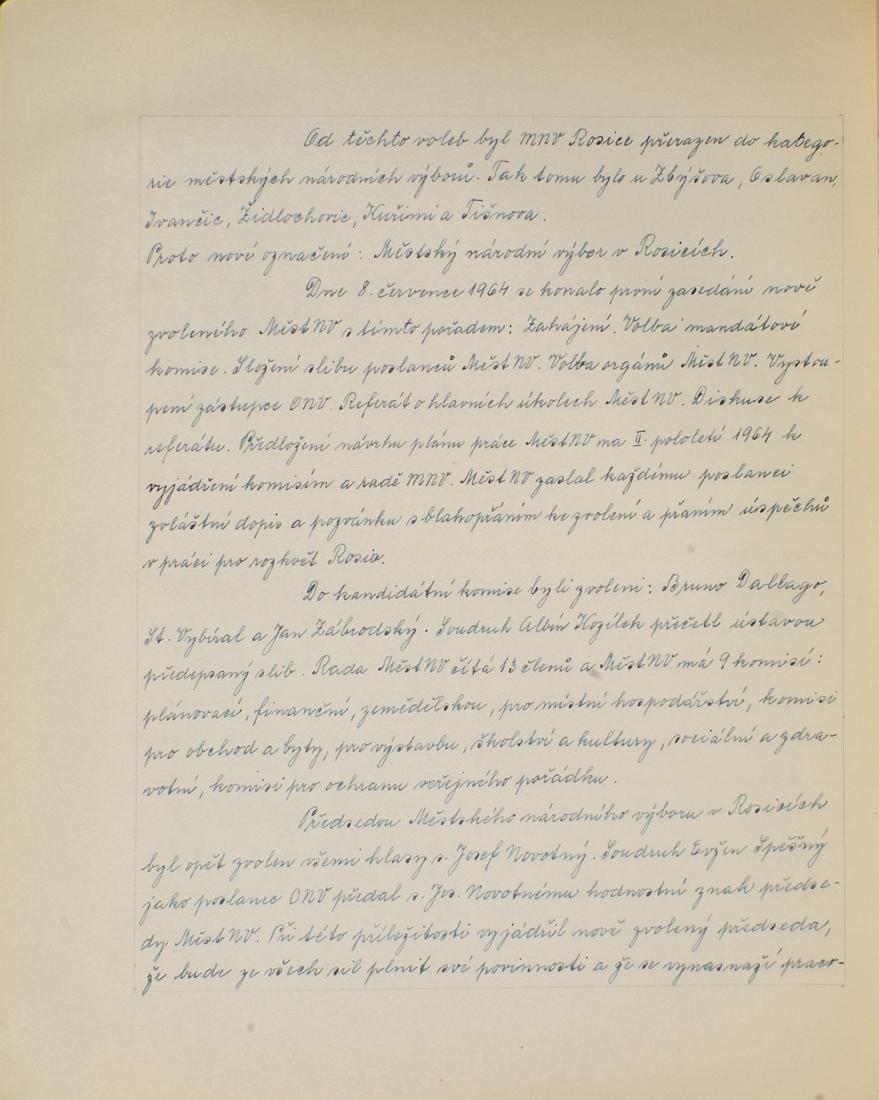 Od těchto voleb byl MNV Rosice přerazen do katego-
rie městských národních výborů. Tak tomu bylo u Zbýšova, Oslavan,
Ivančic, Židlochovic, Kuřimi a Tišnova.
Proto nové označení: Městský národní výbor v Rosicích.
Dne 8. července 1964 se konalo první zasedání nově
zvoleného MěstNV s tímto pořadem: Zahájení. Volba mandátové
komise. Složení slibu poslanců MěstNV. Volba orgánů MěstNV. Vystou-
pení zástupce ONV. Referát o hlavních úkolech MěstNV. Diskuse k
referátu. Předložení návrhu plánu práce MěstNV na II. pololetí 1964 k
vyjádření komisím a radě MNV. MěstNV zaslal každému poslanci
zvláštní dopis a pozvánku s blahopřáním ke zvolení a přáním úspěchů
v práci pro rozkvět Rosic.
Do kandidátní komise byli zvoleni: Bruno Dallago,
St. Vybíral a Jan Zábrodský. Soudruh Albín Kozílek přečetl ústavou
předepsaný slib. Rada MěstNV čítá 13 členů a MěstNV má 9 komisí:
plánovací, finanční, zemědělskou, pro místní hospodářství, komisi
pro obchod a byty, pro výstavbu, školství a kultury, sociální a zdra-
votní, komisi pro ochranu veřejného pořádku.
Předsedou Městského národního výboru v Rosicích
byl opět zvolen všemi hlasy s. Josef Novotný. Soudruh Evžen Spěšný
jako poslanec ONV předal s. Jos. Novotnému hodnostní znak předse-
dy MěstNV. Při této příležitosti vyjádřil nově zvolený předseda,
že bude ze všech sil plnit své povinnosti a že se vynasnaží praco-